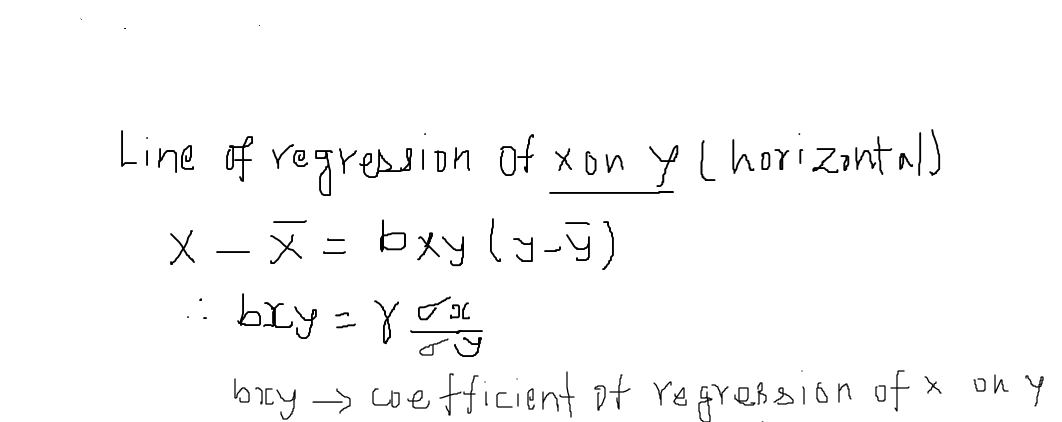 Line of regression of x on y (horizontal)
x - x̄ = bxy (y - ȳ)
∴ bxy = r σx/σy
bxy → coefficient of regression of x on y